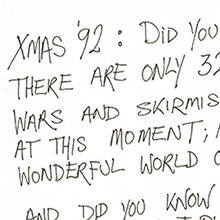 XMAS '92 : DID YOU
THERE ARE ONLY 32
WARS AND SKIRMIS
AT THIS MOMENT;
WONDERFUL WORLD
AND DID YOU KNOW